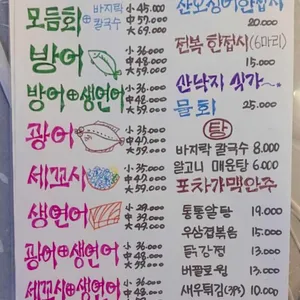 모듬회⊕바지락 칼국수
小 45.000
中 57.000
大 69.000
방어
小 36.000
中 48.000
大 59.000
방어⊕생연어
小 36.000
中 48.000
大 59.000
광어
小 35.000
中 47.000
大 59.000
세꼬시
小 35.000
中 47.000
大 59.000
생연어
小 29.000
中 39.000
大 49.000
광어⊕생연어
小 36.000
中 48.000
大 59.000
세꼬시⊕생연어
小 36.000
中 48.000
大 59.000
산오징어한접시
20.000
전복 한접시(6마리)
15.000
산낙지 싯가~
물회 25.000
탕
바지락 칼국수 8.000
알고니 매운탕 6.000
포차갸맥안주
통통알탕 19.000
우삼겹볶음 15.000
닭강정 13.000
버팔로윙 13.000
새우튀김(7PS) 10.000